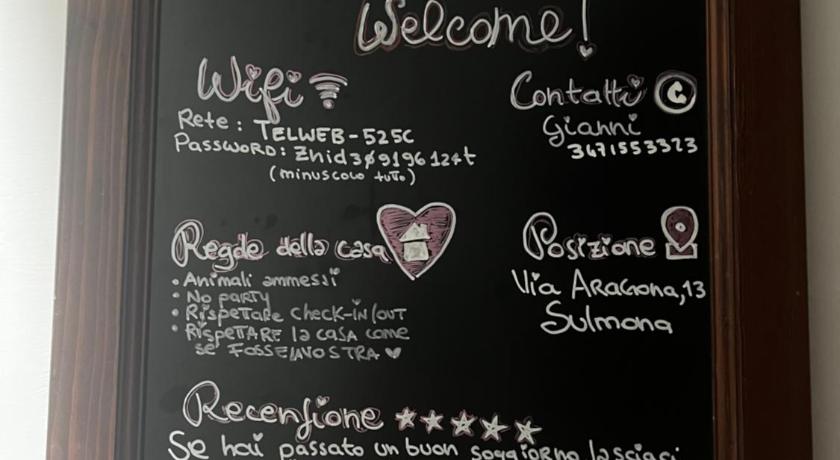 Welcome!
Wifi
Rete: TELWEB-525C
PASSWORD: Znid3090196124t
(minuscolo tutto)
Contatti
Gianni
3471553323
Regole della casa
• Animali ammessi
• No PARTY
• Rispettare check-in/out
• RISPETTARE la casa come
se FOSSE LA VOSTRA
Posizione
Via ARAGONA, 13
Sulmona
Recensione
Se hai passato un buon soggiorno lasciaci